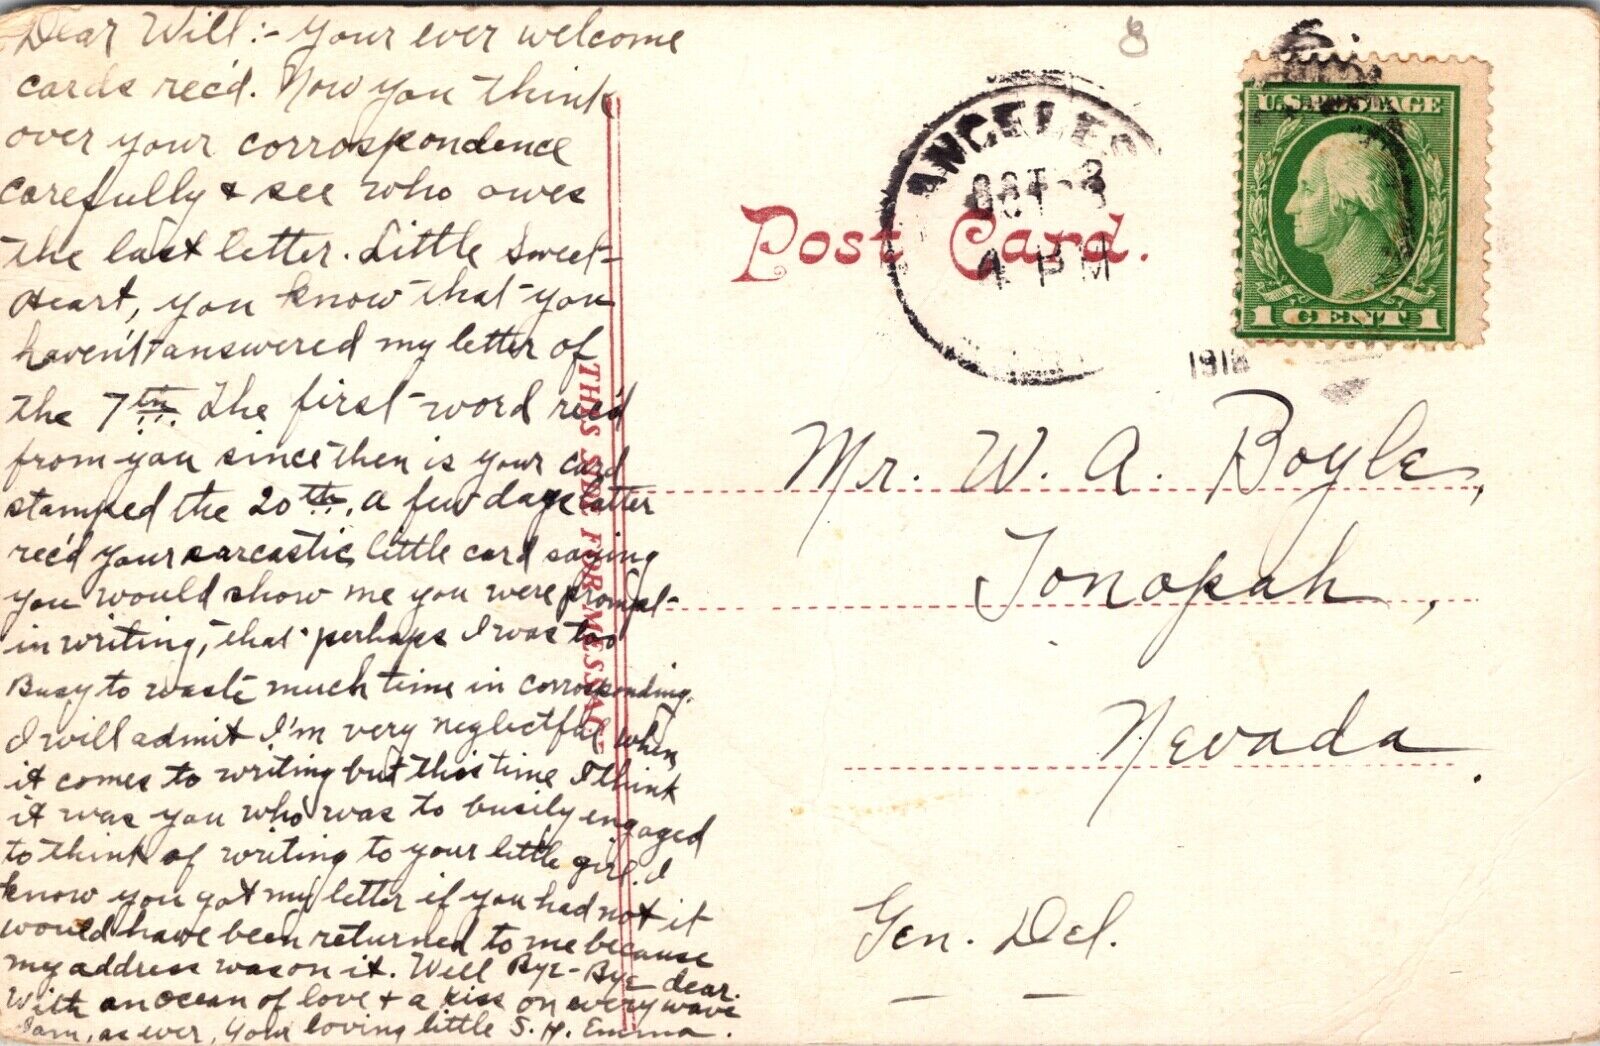 Dear Will:- your ever welcome
cards rec'd. Now you think
over your corrospondence
carefully & see who owes
the last letter. Little Sweet-
Heart, you know that you
haven't answered my letter of
the 7th. The first word rec'd
from you since then is your card
stamped the 20th. a few days latter
rec'd your sarcastic little card saying
you would show me you were prompt
in writing, that perhaps I was too
Busy to waste much time in corrosponding.
I will admit I'm very neglectful when
it comes to writing but this time I think
it was you who was to busily engaged
to think of writing to your little girl. I
know you got my letter if you had not it
would have been returned to me because
my address was on it. Well Bye-Bye dear.
With an ocean of love & a kiss on every wave
I am, as ever, your loving little S. H. Emma.
THIS SIDE FOR MESSAGE
8
ANGELES
OCT 3
4 PM
191
U.S. POSTAGE
1 CENT 1
Post Card.
Mr. W. A. Boyle,
Tonopah,
Nevada.
Gen. Del.